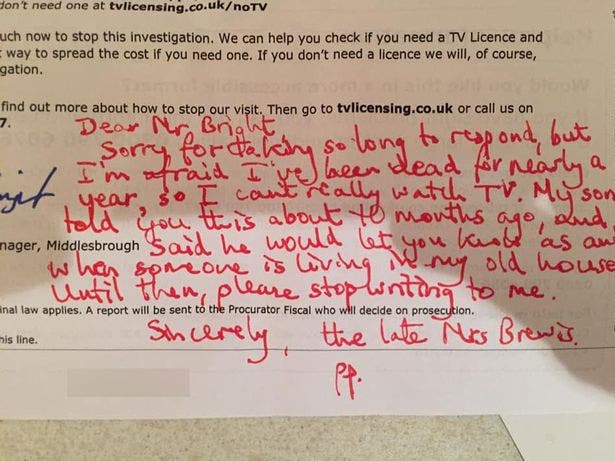 don't need one at tvlicensing.co.uk/noTV
uch now to stop this investigation. We can help you check if you need a TV Licence and
way to spread the cost if you need one. If you don't need a licence we will, of course,
gation.
find out more about how to stop our visit. Then go to tvlicensing.co.uk or call us on
7.
Dear Mr Bright
Sorry for taking so long to respond, but
I'm afraid I've been dead for nearly a
year, so I can't really watch TV. My son
told you this about 10 months ago, and
nager, Middlesbrough
said he would let you know as and
when someone is living in my old house
Until then, please stop writing to me.
inal law applies. A report will be sent to the Procurator Fiscal who will decide on prosecution.
Sincerely, the late Mrs Brewis.
his line.
pp.